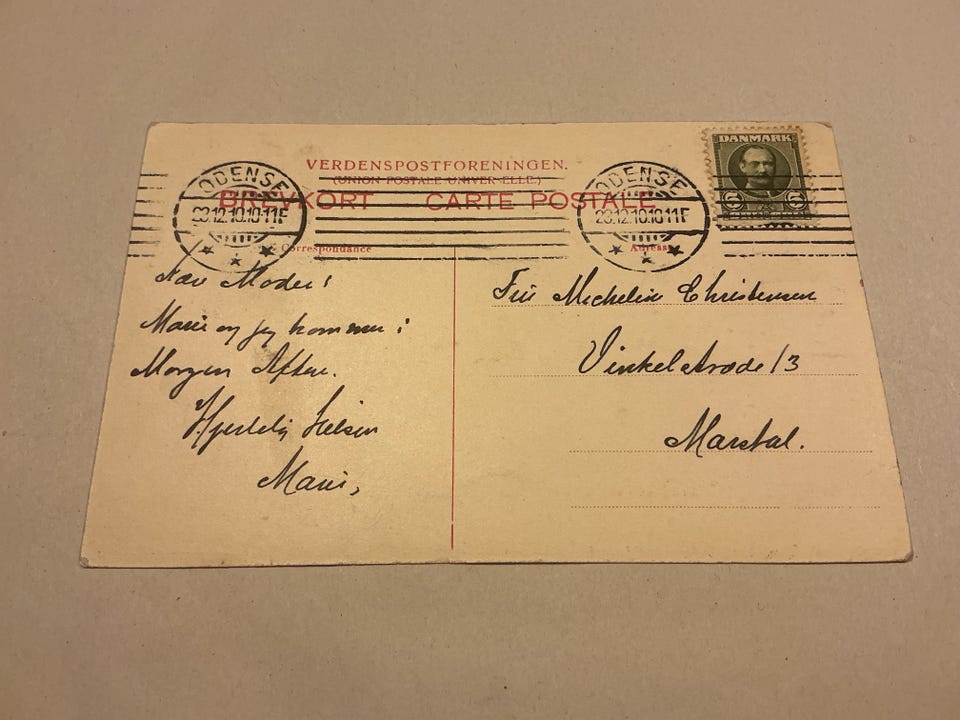 VERDENSPOSTFORENINGEN.
(UNION POSTALE UNIVERSELLE.)
BREVKORT CARTE POSTALE
DANMARK
ODENSE
23.12.10.10-11F
ODENSE
23.12.10.10-11F
Correspondance
Adresse
Kære Moder!
Marie og jeg kommer i
Morgen Aften.
Hjertelig Hilsen
Marie,
Fru Micheline Christensen
Vinkelstræde 13
Marstal.